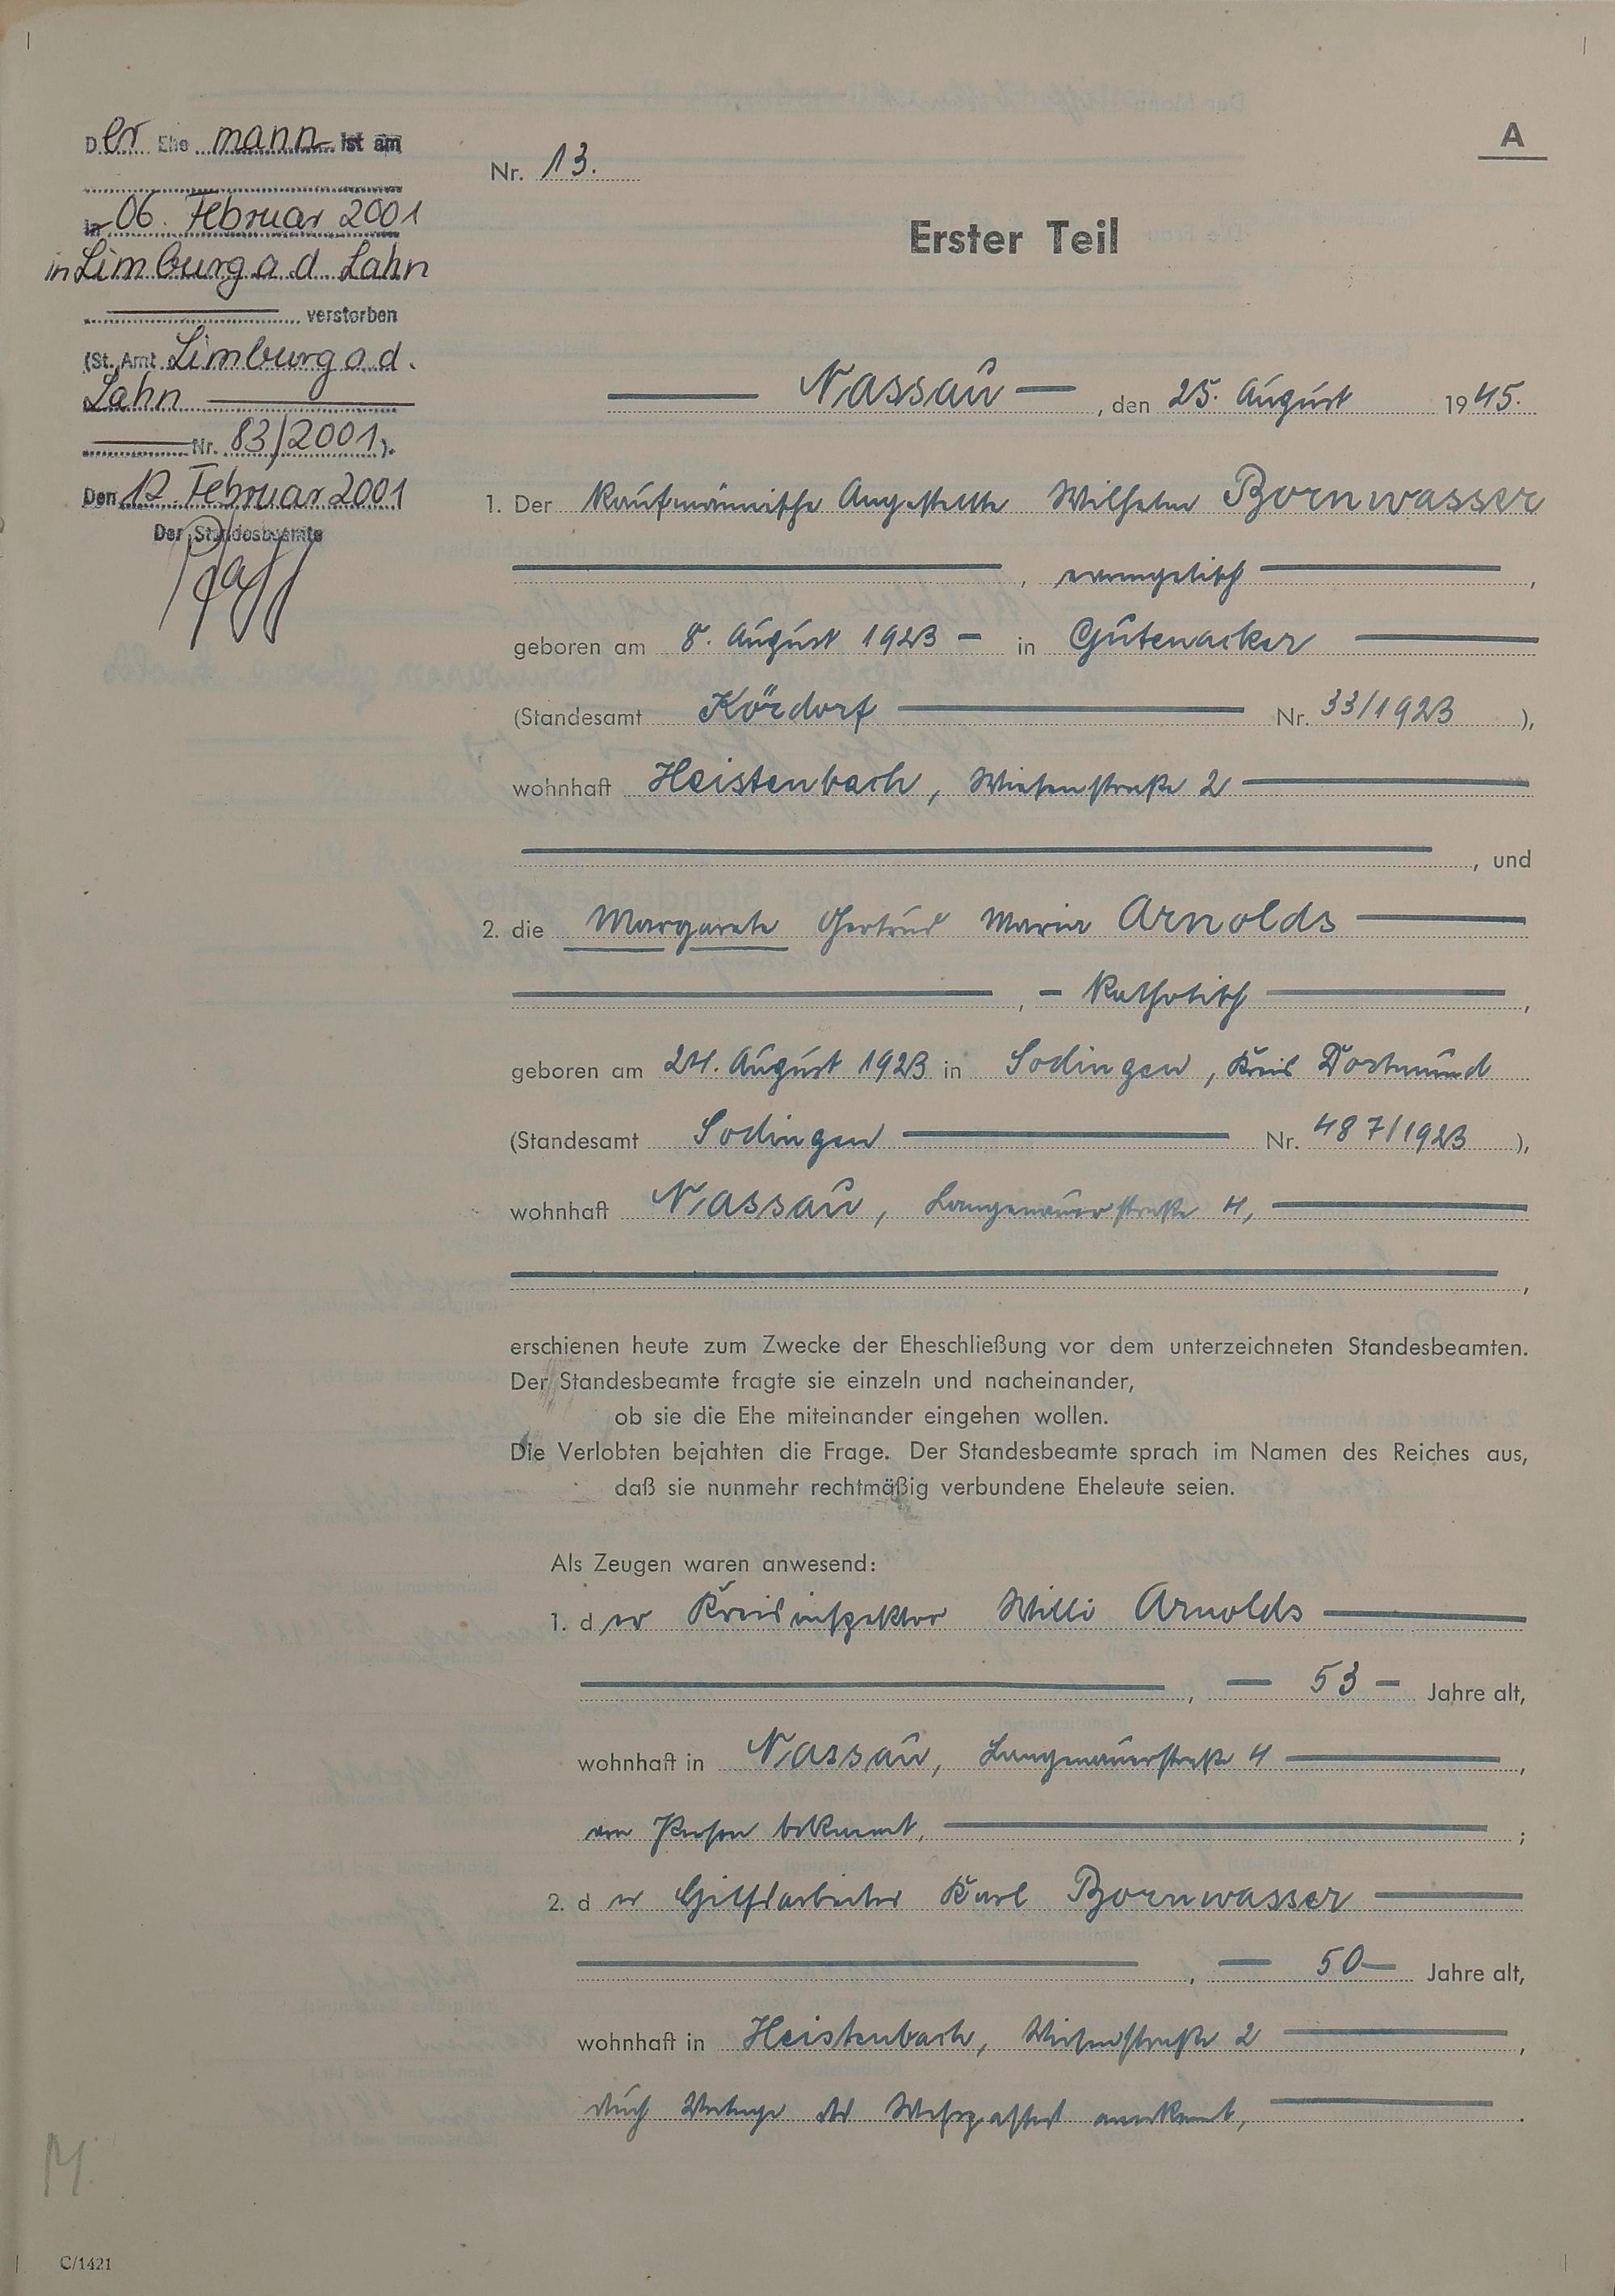 Der Ehe mann ist am
in 06. Februar 2001
in Limburg a d Lahn
verstorben
(St. Amt Limburg a d.
Lahn
Nr. 83/2001).
Den 12. Februar 2001
Der Standesbeamte
A
Nr. 13.
Erster Teil
Nassau, den 25. August 1945.
1. Der kaufmännische Angestellte Wilhelm Bornwasser
, evangelisch,
geboren am 8. August 1923 in Gutenacker
(Standesamt Kördorf Nr. 33/1923),
wohnhaft Heistenbach, Wiesenstraße 2
, und
2. die Margarete Gertrud Maria Arnolds
, katholisch,
geboren am 24. August 1923 in Sodingen, Kreis Dortmund
(Standesamt Sodingen Nr. 487/1923),
wohnhaft Nassau, Langenauerstraße 4,
,
erschienen heute zum Zwecke der Eheschließung vor dem unterzeichneten Standesbeamten.
Der Standesbeamte fragte sie einzeln und nacheinander,
ob sie die Ehe miteinander eingehen wollen.
Die Verlobten bejahten die Frage. Der Standesbeamte sprach im Namen des Reiches aus,
daß sie nunmehr rechtmäßig verbundene Eheleute seien.
Als Zeugen waren anwesend:
1. der Kreisinspektor Willi Arnolds
, 53 Jahre alt,
wohnhaft in Nassau, Langenauerstraße 4,
von Person bekannt, ;
2. der Hilfsarbeiter Karl Bornwasser
, 50 Jahre alt,
wohnhaft in Heistenbach, Wiesenstraße 2,
durch Vorlage des Wehrpasses anerkannt, .
C/1421